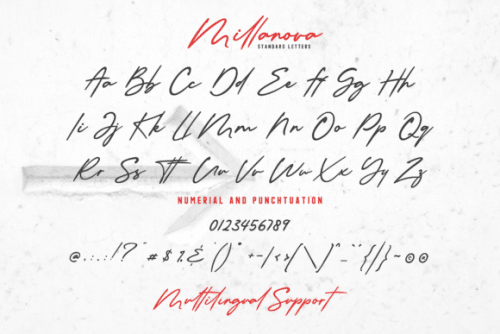 Millanova
STANDARD LETTERS
Aa Bb Cc Dd Ee Ff Gg Hh
Ii Jj Kk Ll Mm Nn Oo Pp Qq
Rr Ss Tt Uu Vv Ww Xx Yy Zz
NUMERIAL AND PUNCHTUATION
0123456789
@.,:;!?" #$%&'()* +-/<>[\]^_`´{|}~©®
Multilingual Support